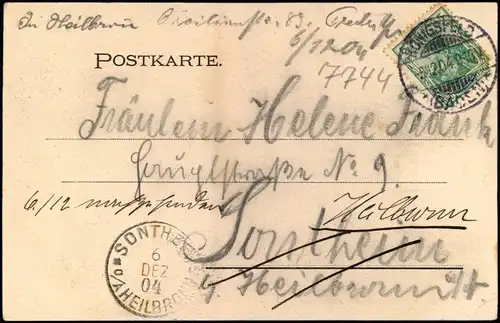 In Heilbronn Cäcilienstr. 83.
6/12 04
POSTKARTE.
7744
KÖNIGSFELD
(BADEN)
Fräulein Helene Frank
Hauptstraße No 9.
6/12 nachgesenden
Heilbronn
Sontheim
b/ Heilbronn
SONTHEIM
6
DEZ
04
O/A HEILBRONN